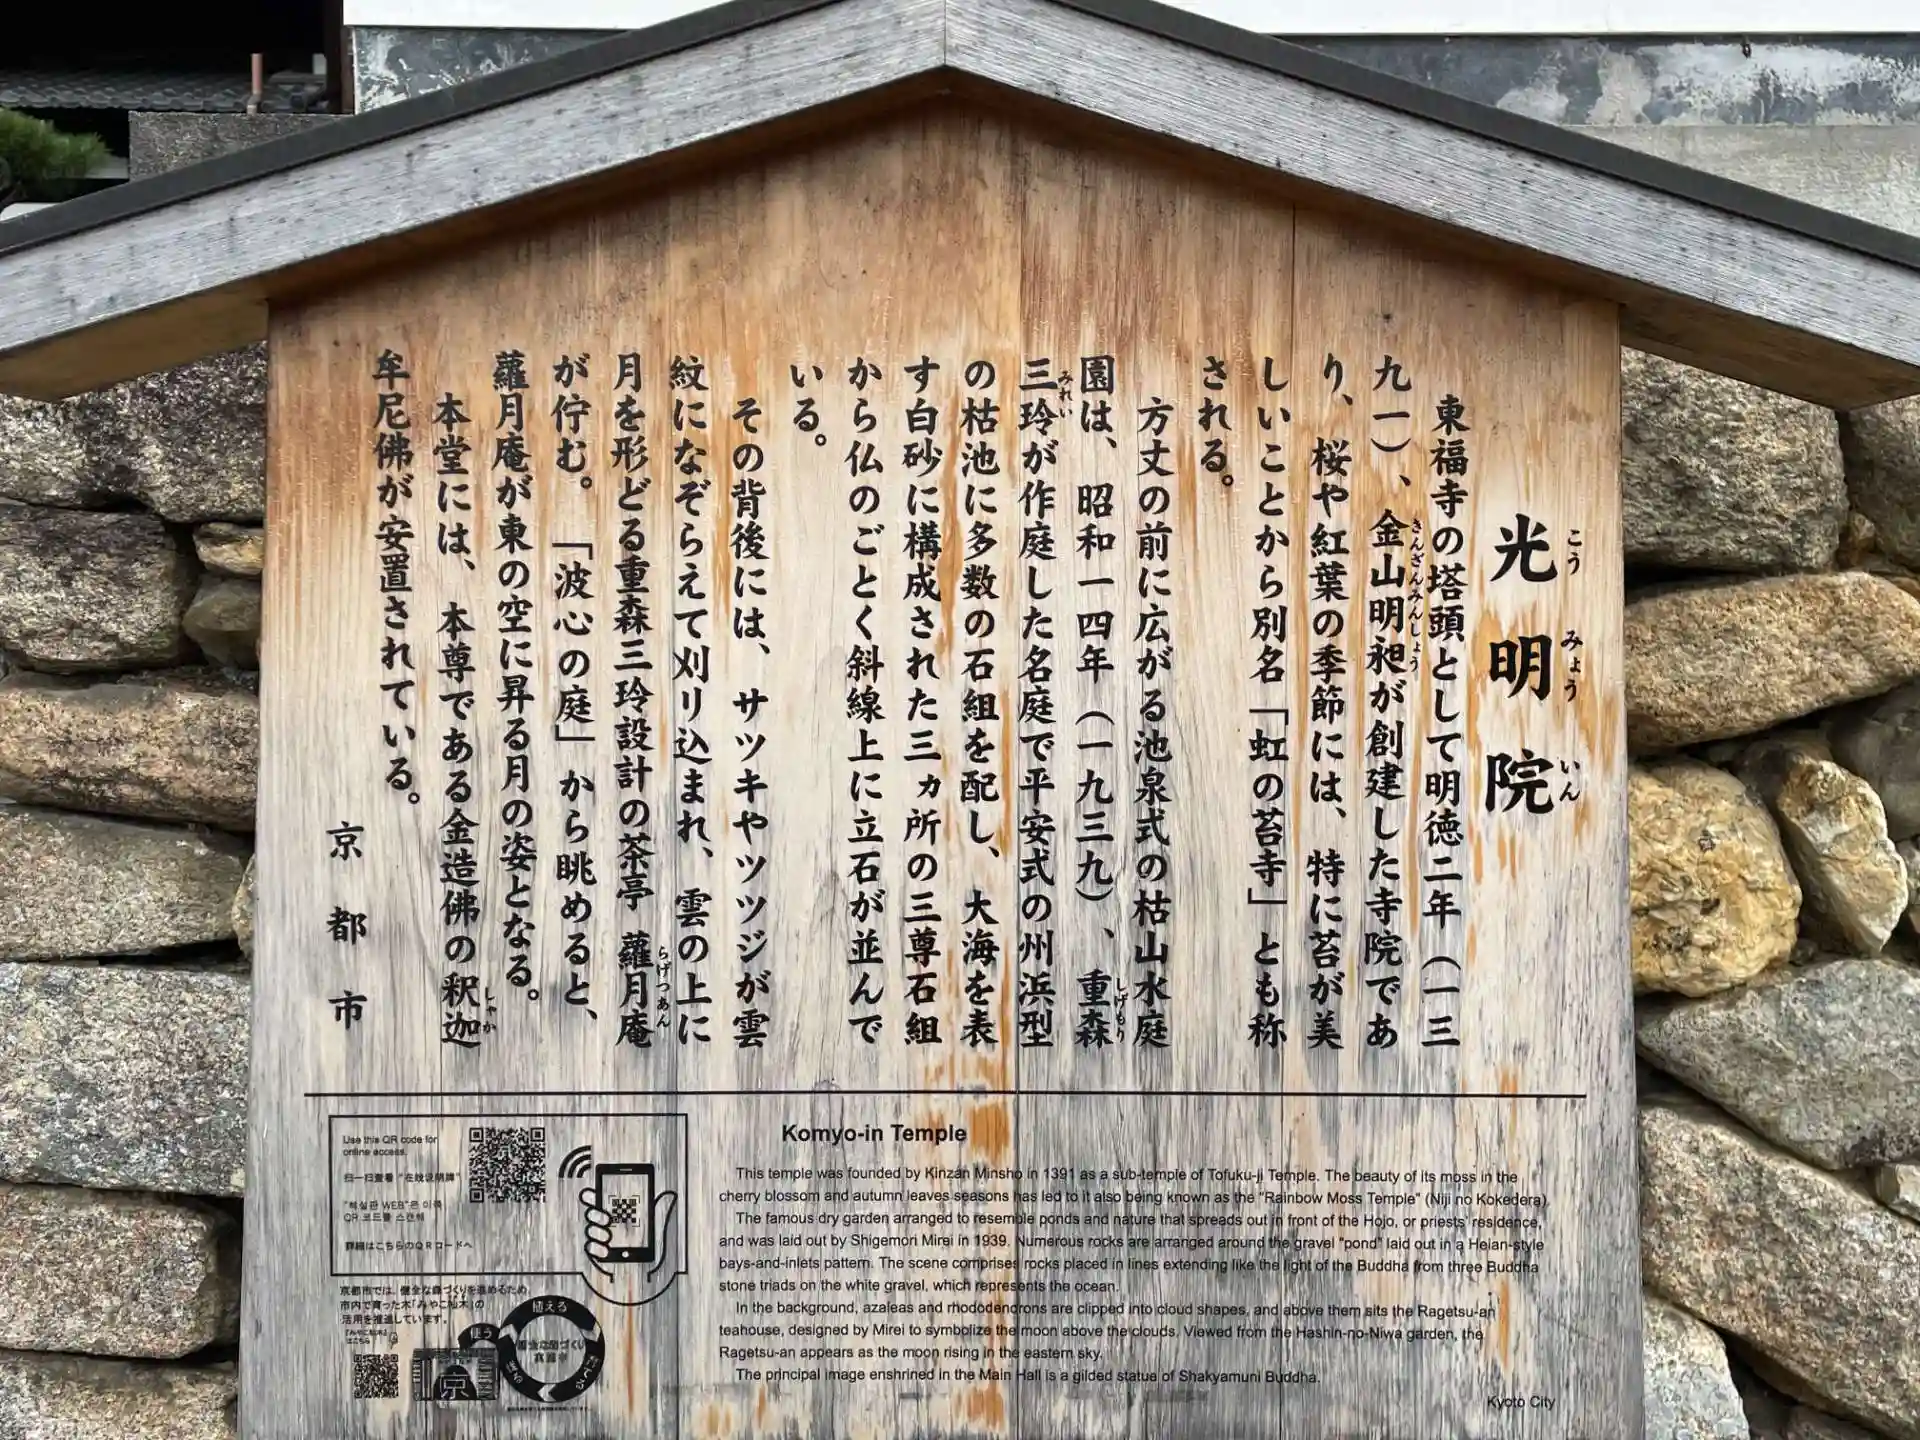 光明院
こう みょう いん
東福寺の塔頭として明徳二年（一三
九一）、金山明昶が創建した寺院であ
きんざんみんしょう
り、桜や紅葉の季節には、特に苔が美
しいことから別名「虹の苔寺」とも称
される。
方丈の前に広がる池泉式の枯山水庭
園は、昭和一四年（一九三九）、重森
しげもり
三玲が作庭した名庭で平安式の州浜型
みれい
の枯池に多数の石組を配し、大海を表
す白砂に構成された三ヵ所の三尊石組
から仏のごとく斜線上に立石が並んで
いる。
その背後には、サツキやツツジが雲
紋になぞらえて刈り込まれ、雲の上に
月を形どる重森三玲設計の茶亭 蘿月庵
らげつあん
が佇む。「波心の庭」から眺めると、
蘿月庵が東の空に昇る月の姿となる。
本堂には、本尊である金造佛の釈迦
しゃか
牟尼佛が安置されている。
京都市
Use this QR code for
online access.
扫一扫查看 "在线说明牌"
"해설판 WEB"은 이쪽
QR 코드를 스캔해
詳細はこちらのQRコードへ
京都市では、健全な森づくりを進めるため、
市内で育った木「みやこ杣木」の
活用を推進しています。
「みやこ杣木」
はこちら
使う
植える
京
Komyo-in Temple
This temple was founded by Kinzan Minsho in 1391 as a sub-temple of Tofuku-ji Temple. The beauty of its moss in the
cherry blossom and autumn leaves seasons has led to it also being known as the "Rainbow Moss Temple" (Niji no Kokedera).
The famous dry garden arranged to resemble ponds and nature that spreads out in front of the Hojo, or priests' residence,
and was laid out by Shigemori Mirei in 1939. Numerous rocks are arranged around the gravel "pond" laid out in a Heian-style
bays-and-inlets pattern. The scene comprises rocks placed in lines extending like the light of the Buddha from three Buddha
stone triads on the white gravel, which represents the ocean.
In the background, azaleas and rhododendrons are clipped into cloud shapes, and above them sits the Ragetsu-an
teahouse, designed by Mirei to symbolize the moon above the clouds. Viewed from the Hashin-no-Niwa garden, the
Ragetsu-an appears as the moon rising in the eastern sky.
The principal image enshrined in the Main Hall is a gilded statue of Shakyamuni Buddha.
Kyoto City